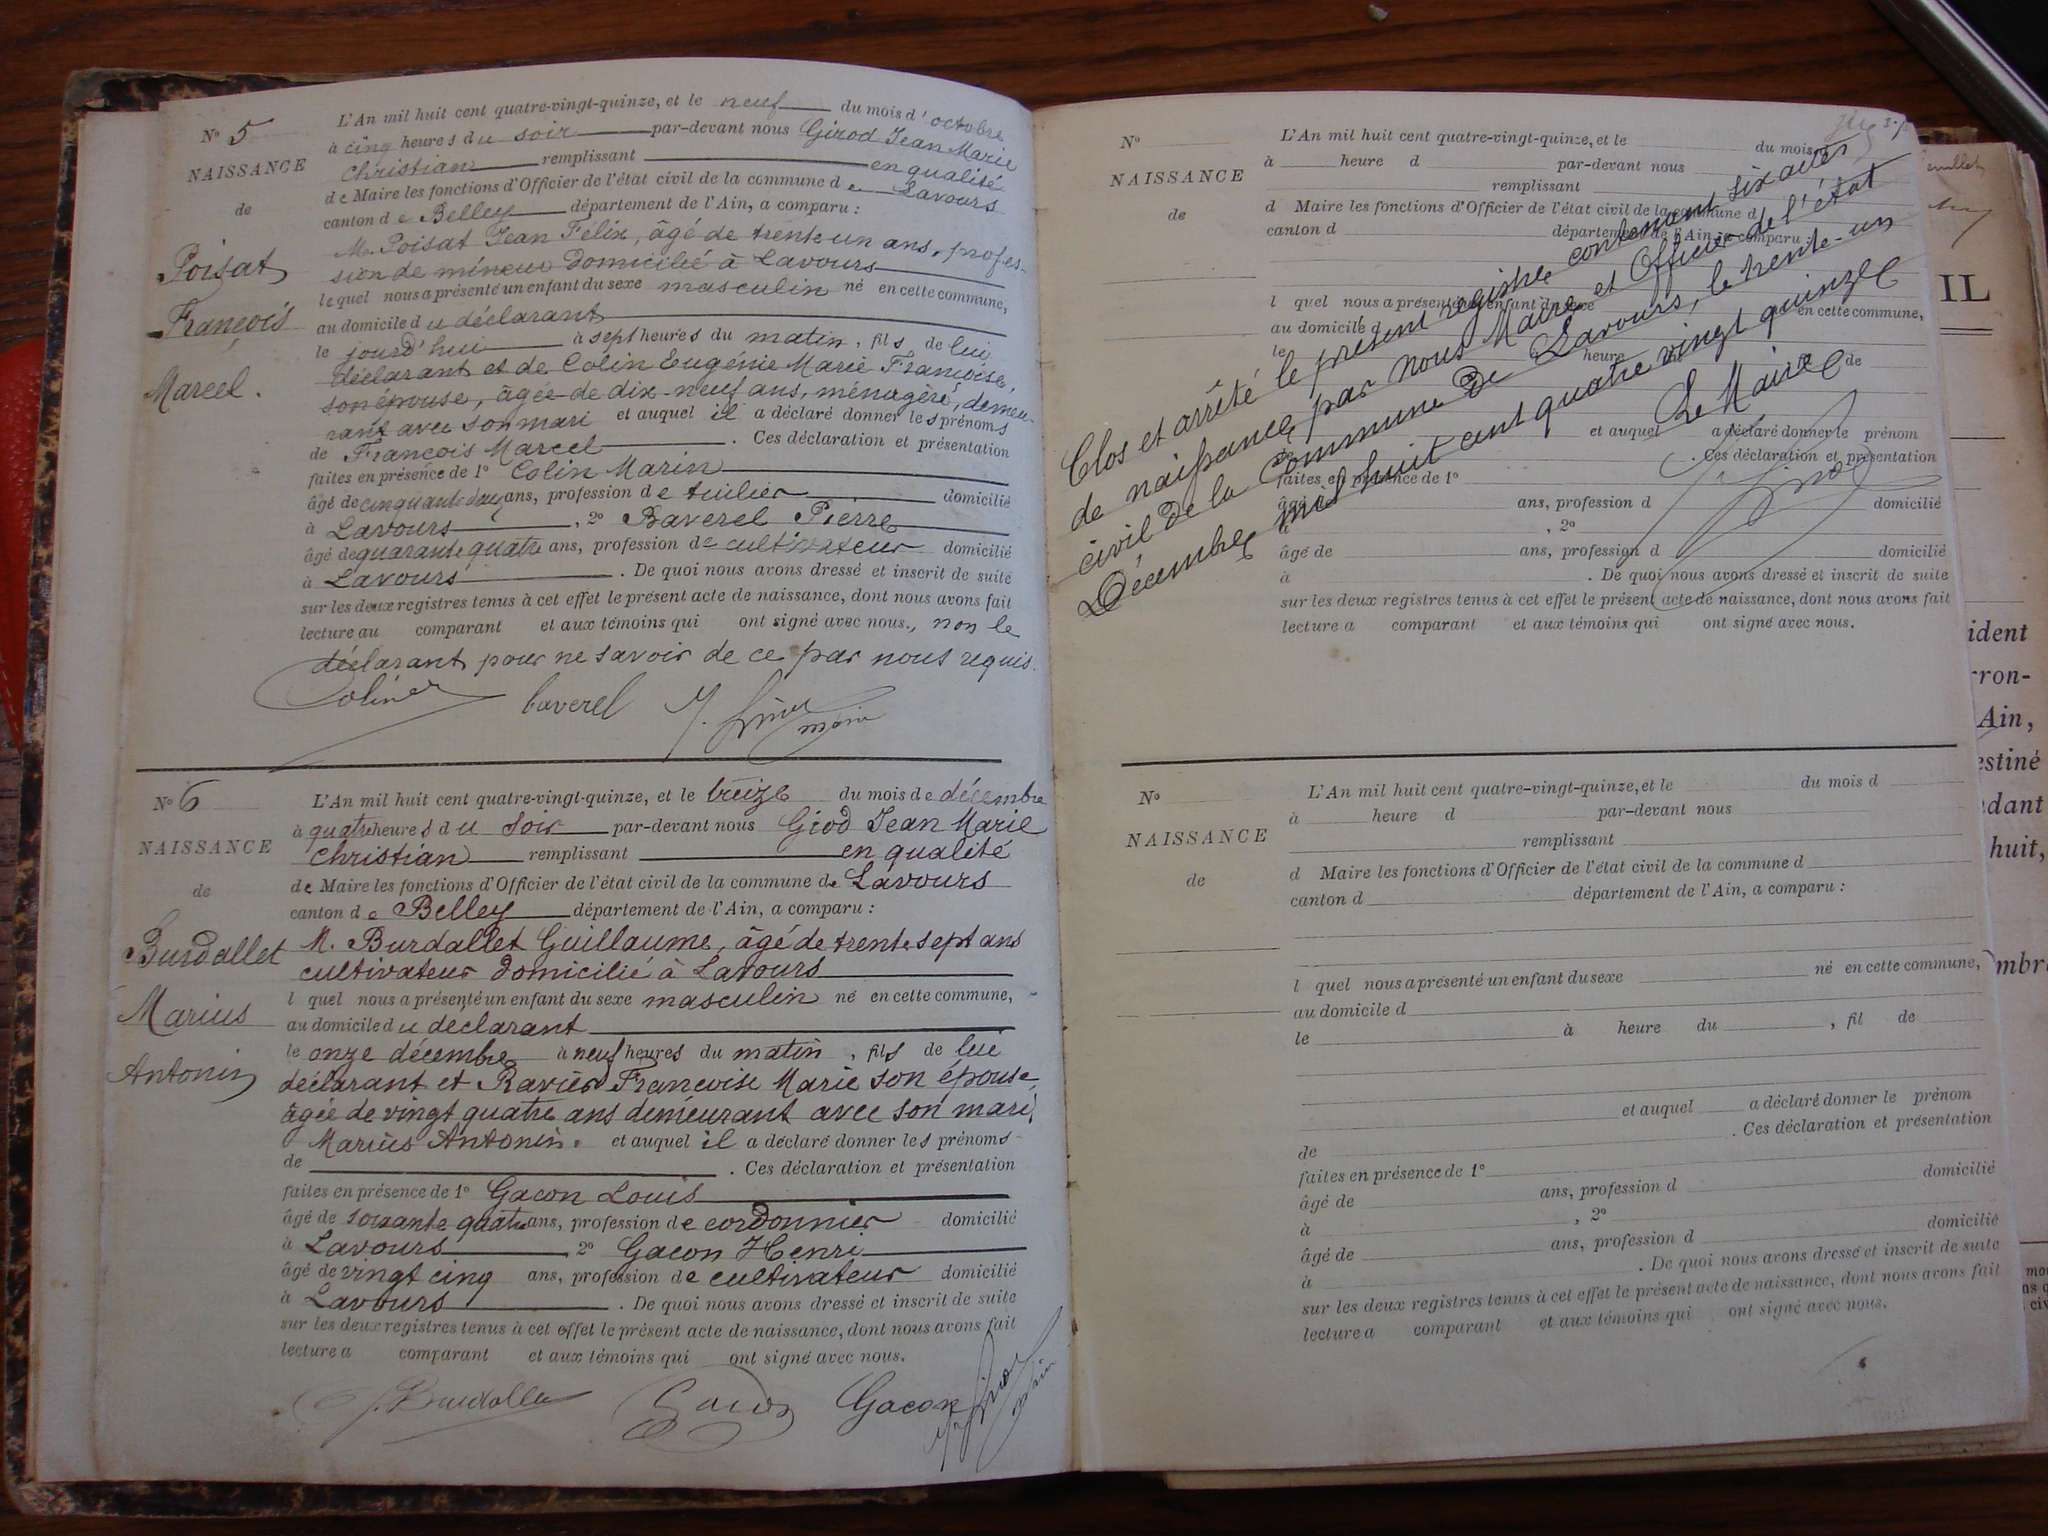 N° 5
NAISSANCE
de
Poisat
François
Marcel.
L'An mil huit cent quatre-vingt-quinze, et le neuf du mois d'octobre
à cinq heures du soir par-devant nous Girod Jean Marie
Christian remplissant en qualité
de Maire les fonctions d'Officier de l'état civil de la commune de Lavours
canton de Belley département de l'Ain, a comparu :
M. Poisat Jean Felix, âgé de trente un ans, profes-
sion de mineur domicilié à Lavours
lequel nous a présenté un enfant du sexe masculin né en cette commune,
au domicile du déclarant
le jourd'hui à sept heures du matin, fils de lui
déclarant et de Colin Eugénie Marie Françoise,
son épouse, âgée de dix-neuf ans, ménagère, demeu-
rant avec son mari et auquel il a déclaré donner les prénoms
de François Marcel. Ces déclaration et présentation
faites en présence de 1° Colin Marin
âgé de cinquante ans, profession de tuilier domicilié
à Lavours, 2° Baverel Pierre
âgé de quarante quatre ans, profession de cultivateur domicilié
à Lavours. De quoi nous avons dressé et inscrit de suite
sur les deux registres tenus à cet effet le présent acte de naissance, dont nous avons fait
lecture au comparant et aux témoins qui ont signé avec nous., non le
déclarant pour ne savoir de ce par nous requis.
Colin baverel J. Girod maire
N° 6
NAISSANCE
de
Burdallet
Marius
Antonin
L'An mil huit cent quatre-vingt-quinze, et le treize du mois de décembre
à quatre heures du soir par-devant nous Giod Jean Marie
Christian remplissant en qualité
de Maire les fonctions d'Officier de l'état civil de la commune de Lavours
canton de Belley département de l'Ain, a comparu :
M. Burdallet Guillaume, âgé de trente sept ans
cultivateur domicilié à Lavours
l quel nous a présenté un enfant du sexe masculin né en cette commune,
au domicile du déclarant
le onze décembre à neuf heures du matin, fils de lui
déclarant et Ravier Françoise Marie son épouse,
âgée de vingt quatre ans demeurant avec son mari,
Marius Antonin. et auquel il a déclaré donner les prénoms
de . Ces déclaration et présentation
faites en présence de 1° Gacon Louis
âgé de soixante quatre ans, profession de cordonnier domicilié
à Lavours 2° Gacon Henri
âgé de vingt cinq ans, profession de cultivateur domicilié
à Lavours. De quoi nous avons dressé et inscrit de suite
sur les deux registres tenus à cet effet le présent acte de naissance, dont nous avons fait
lecture a comparant et aux témoins qui ont signé avec nous.
Gacon Gacon
N°
NAISSANCE
de
L'An mil huit cent quatre-vingt-quinze, et le du mois
à heure d par-devant nous
remplissant
d Maire les fonctions d'Officier de l'état civil de la commune d
canton d département de l'Ain, a comparu :
l quel nous a présenté un enfant du sexe
au domicile d en cette commune,
le heure de
et auquel a déclaré donner le prénom
de . Ces déclaration et présentation
faites en présence de 1°
âgé ans, profession d domicilié
à , 2°
âgé de ans, profession d domicilié
à . De quoi nous avons dressé et inscrit de suite
sur les deux registres tenus à cet effet le présent acte de naissance, dont nous avons fait
lecture a comparant et aux témoins qui ont signé avec nous.
Clos et arrêté le présent registre contenant six actes
de naissance, par nous Maire et Officier de l'état
civil de la Commune de Lavours, le trente-un
Décembre mil huit cent quatre vingt quinze
Le Maire
J. Girod
N°
NAISSANCE
de
L'An mil huit cent quatre-vingt-quinze, et le du mois d
à heure d par-devant nous
remplissant
d Maire les fonctions d'Officier de l'état civil de la commune d
canton d département de l'Ain, a comparu :
l quel nous a présenté un enfant du sexe né en cette commune,
au domicile d
le à heure du , fil de
et auquel a déclaré donner le prénom
de . Ces déclaration et présentation
faites en présence de 1°
âgé de ans, profession d domicilié
à , 2°
âgé de ans, profession d domicilié
à . De quoi nous avons dressé et inscrit de suite
sur les deux registres tenus à cet effet le présent acte de naissance, dont nous avons fait
lecture a comparant et aux témoins qui ont signé avec nous.
IL
ident
rron-
Ain,
estiné
dant
huit,
mbr